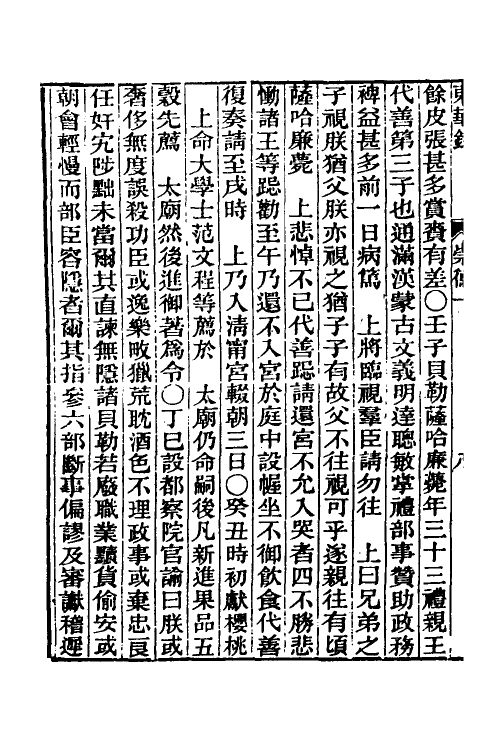 東華錄 崇德一 八
餘皮張甚多賞賚有差〇壬子貝勒薩哈廉薨年三十三禮親王
代善第三子也通滿漢蒙古文義明達聰敏掌禮部事贊助政務
裨益甚多前一日病篤　上將臨視羣臣請勿往　上曰兄弟之
子視朕猶父朕亦視之猶子子有故父不往視可乎遂親往有頃
薩哈廉薨　上悲悼不已代善跽請還宮不允入哭者四不勝悲
慟諸王等跽勸至午乃還不入宮於庭中設幄坐不御飲食代善
復奏請至戌時　上乃入清甯宮輟朝三日〇癸丑時初獻櫻桃
上命大學士范文程等薦於　太廟仍命嗣後凡新進果品五
穀先薦　太廟然後進御著爲令〇丁巳設都察院官諭曰朕或
奢侈無度誤殺功臣或逸樂畋獵荒耽酒色不理政事或棄忠良
任奸宄陟黜未當爾其直諫無隱諸貝勒若廢職業黷貨偷安或
朝會輕慢而部臣容隱者爾其指參六部斷事偏謬及審讞稽遲